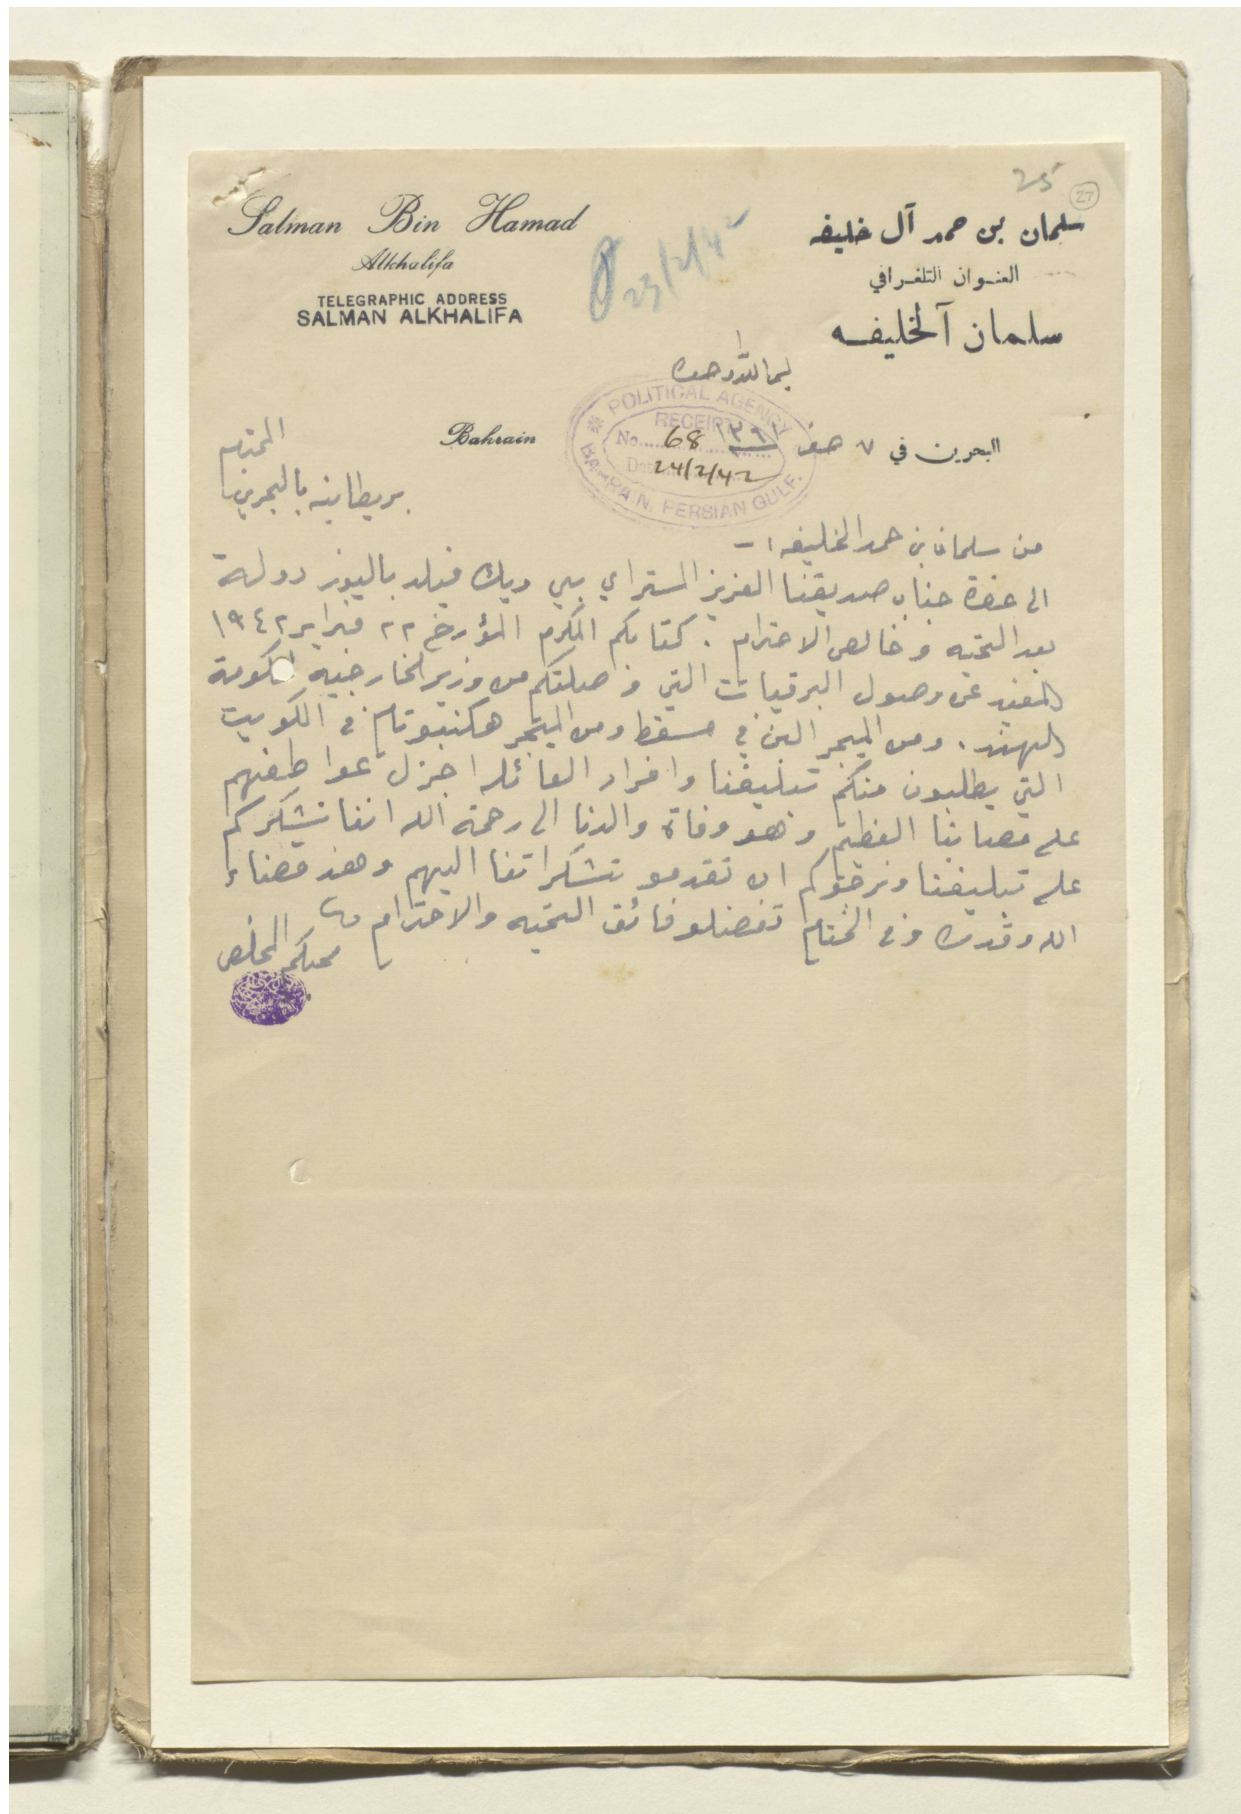 25
27
Salman Bin Hamad
Alkhalifa
TELEGRAPHIC ADDRESS
SALMAN ALKHALIFA
23/2/42
سلمان بن حمد آل خليفه
العنوان التلغرافي
سلمان آلخليفه
بسم الله وحده
Bahrain
POLITICAL AGENCY
RECEIPT
No. 68
Date 24/2/42
BAHRAIN, PERSIAN GULF.
البحرين في ٧ صفر ١٣٦١
من سلمان بن حمد الخليفه :-
الى حضرة جناب صديقنا العزيز المستر اي بي ويك فيلد باليوز دولة
بريطانيه بالبحرين
المحترم
بعد التحيه وخالص الاحترام . كتابكم المكرم المؤرخ ٢٢ فبراير ١٩٤٢
المفيد عن وصول البرقيات التي وصلتكم من وزير الخارجيه لحكومة
الهند . ومن الميجر الن في مسقط ومن الميجر هكنبوتام في الكويت
التي يطلبون منكم تبليغنا وافراد العائله اجزل عواطفهم
على مصابنا العظيم وهو وفاة والدنا الى رحمة الله اننا نشكركم
على تبليغنا ونرجوكم ان تقدمو تشكراتنا اليهم وهذ قضاء
الله وقدره وفي الختام تفضلو فائق التحيه والاحترام
محبكم المخلص